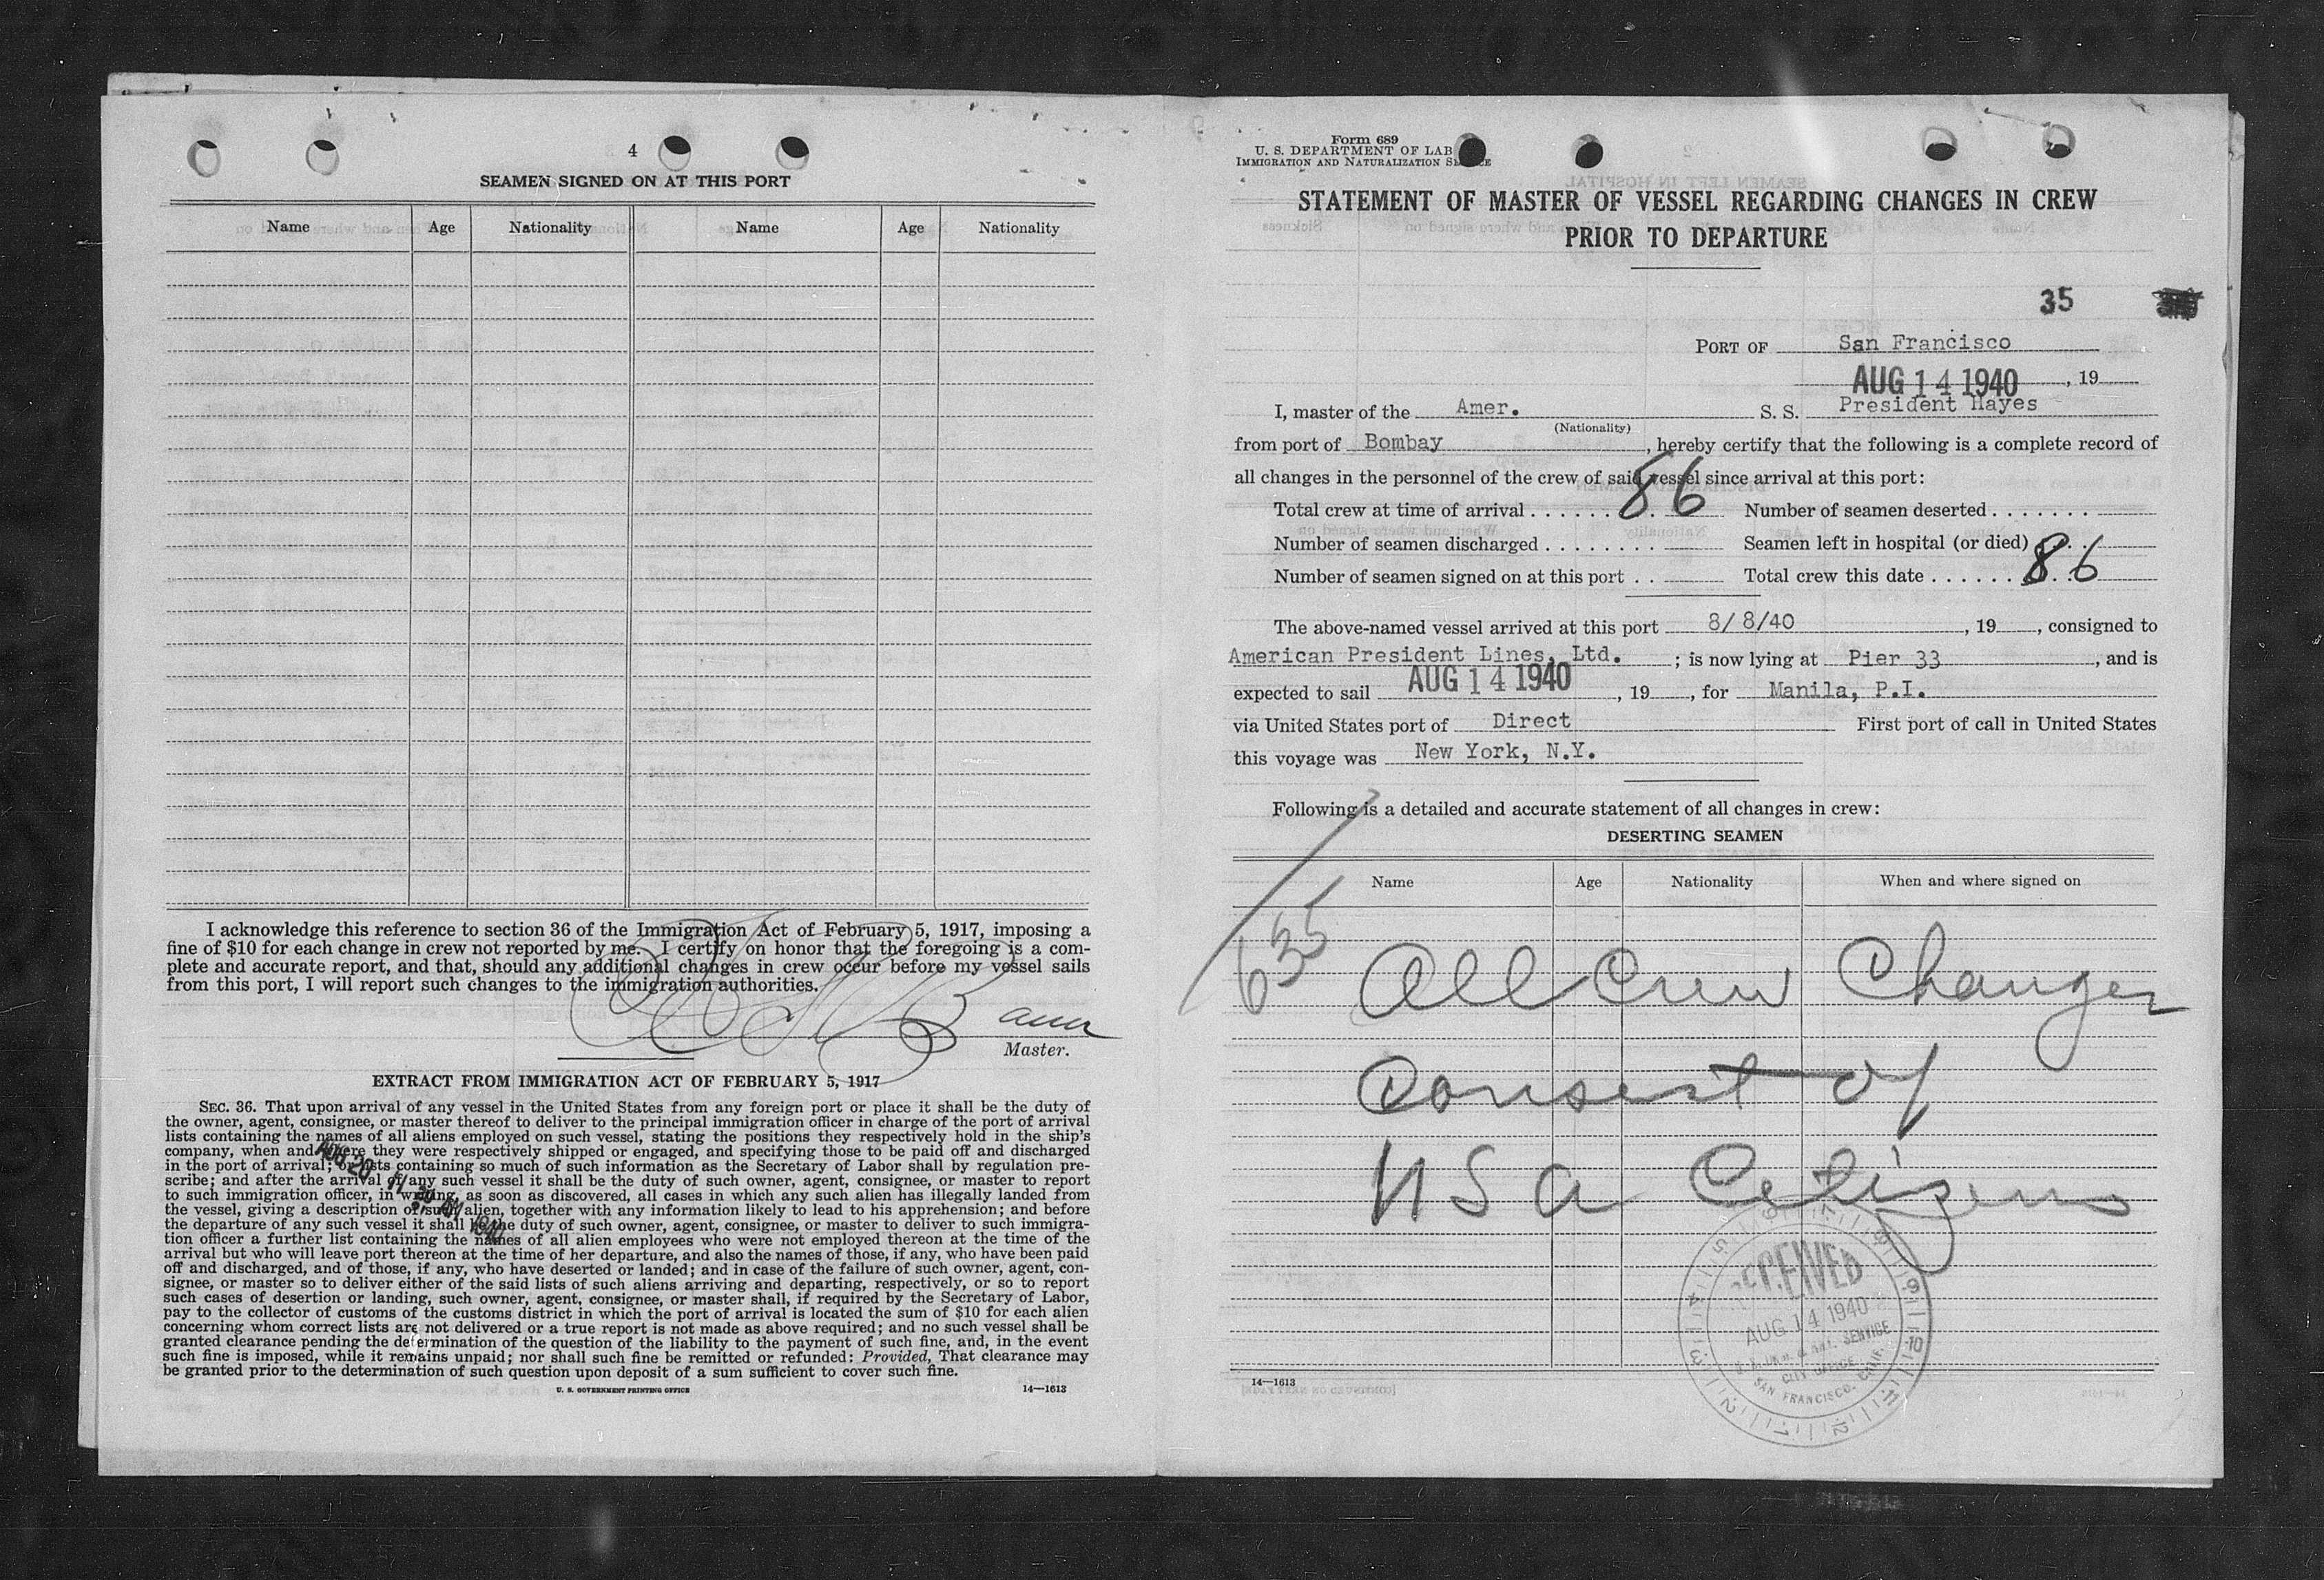 4
SEAMEN SIGNED ON AT THIS PORT
Name Age Nationality Name Age Nationality
I acknowledge this reference to section 36 of the Immigration Act of February 5, 1917, imposing a
fine of $10 for each change in crew not reported by me. I certify on honor that the foregoing is a com-
plete and accurate report, and that, should any additional changes in crew occur before my vessel sails
from this port, I will report such changes to the immigration authorities.
Master.
EXTRACT FROM IMMIGRATION ACT OF FEBRUARY 5, 1917
SEC. 36. That upon arrival of any vessel in the United States from any foreign port or place it shall be the duty of
the owner, agent, consignee, or master thereof to deliver to the principal immigration officer in charge of the port of arrival
lists containing the names of all aliens employed on such vessel, stating the positions they respectively hold in the ship's
company, when and where they were respectively shipped or engaged, and specifying those to be paid off and discharged
in the port of arrival; or lists containing so much of such information as the Secretary of Labor shall by regulation pre-
scribe; and after the arrival of any such vessel it shall be the duty of such owner, agent, consignee, or master to report
to such immigration officer, in writing, as soon as discovered, all cases in which any such alien has illegally landed from
the vessel, giving a description of such alien, together with any information likely to lead to his apprehension; and before
the departure of any such vessel it shall be the duty of such owner, agent, consignee, or master to deliver to such immigra-
tion officer a further list containing the names of all alien employees who were not employed thereon at the time of the
arrival but who will leave port thereon at the time of her departure, and also the names of those, if any, who have been paid
off and discharged, and of those, if any, who have deserted or landed; and in case of the failure of such owner, agent, con-
signee, or master so to deliver either of the said lists of such aliens arriving and departing, respectively, or so to report
such cases of desertion or landing, such owner, agent, consignee, or master shall, if required by the Secretary of Labor,
pay to the collector of customs of the customs district in which the port of arrival is located the sum of $10 for each alien
concerning whom correct lists are not delivered or a true report is not made as above required; and no such vessel shall be
granted clearance pending the determination of the question of the liability to the payment of such fine, and, in the event
such fine is imposed, while it remains unpaid; nor shall such fine be remitted or refunded: Provided, That clearance may
be granted prior to the determination of such question upon deposit of a sum sufficient to cover such fine.
U. S. GOVERNMENT PRINTING OFFICE 14—1613
AUG 20 11 AM 1940
Form 689
U. S. DEPARTMENT OF LAB
IMMIGRATION AND NATURALIZATION SE CE
STATEMENT OF MASTER OF VESSEL REGARDING CHANGES IN CREW
PRIOR TO DEPARTURE
35
PORT OF San Francisco
AUG 14 1940, 19
I, master of the Amer. S. S. President Hayes
(Nationality)
from port of Bombay, hereby certify that the following is a complete record of
all changes in the personnel of the crew of said vessel since arrival at this port:
Total crew at time of arrival . . . . . . 86 Number of seamen deserted . . . . . . .
Number of seamen discharged . . . . . . . . Seamen left in hospital (or died) . . .
Number of seamen signed on at this port . . Total crew this date . . . . . . 86
The above-named vessel arrived at this port 8/8/40, 19, consigned to
American President Lines, Ltd. ; is now lying at Pier 33, and is
expected to sail AUG 14 1940, 19, for Manila, P.I.
via United States port of Direct First port of call in United States
this voyage was New York, N.Y.
Following is a detailed and accurate statement of all changes in crew:
DESERTING SEAMEN
Name Age Nationality When and where signed on
635
All Crew Changes
Consist of
USA Citizens
RECEIVED
AUG 14 1940
CITY OFFICE
SAN FRANCISCO, CALIF.
14—1613